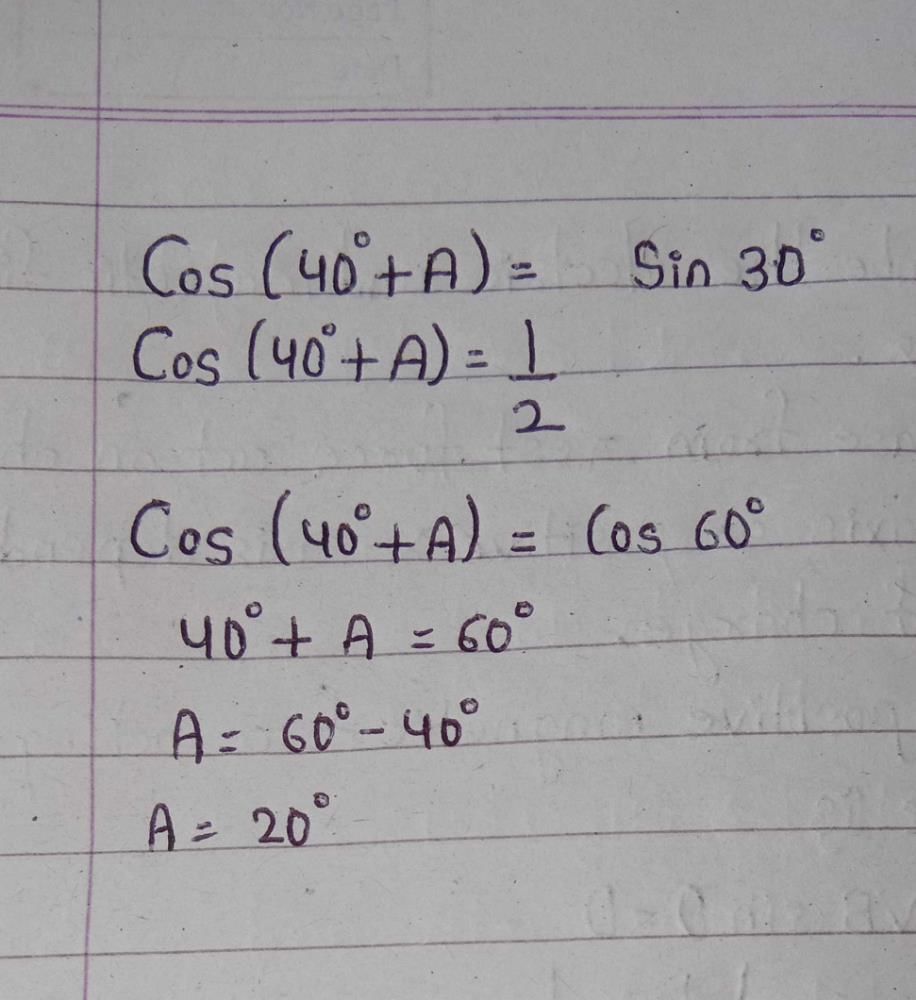 Cos (40° + A) = Sin 30°
Cos (40° + A) = 1/2
Cos (40° + A) = Cos 60°
40° + A = 60°
A = 60° - 40°
A = 20°